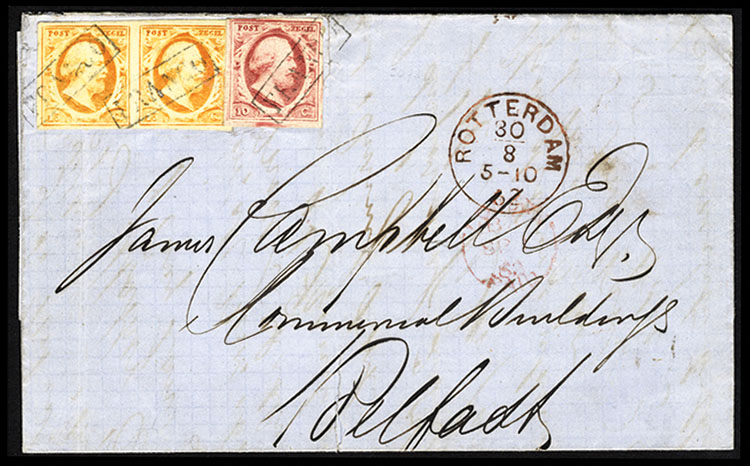 POST ZEGEL
POST ZEGEL
POST ZEGEL
10 C.
FRANCO
FRANCO
FRANCO
ROTTERDAM
30
8
5-10
James Campbell Esq.
Commercial Buildings
Belfast